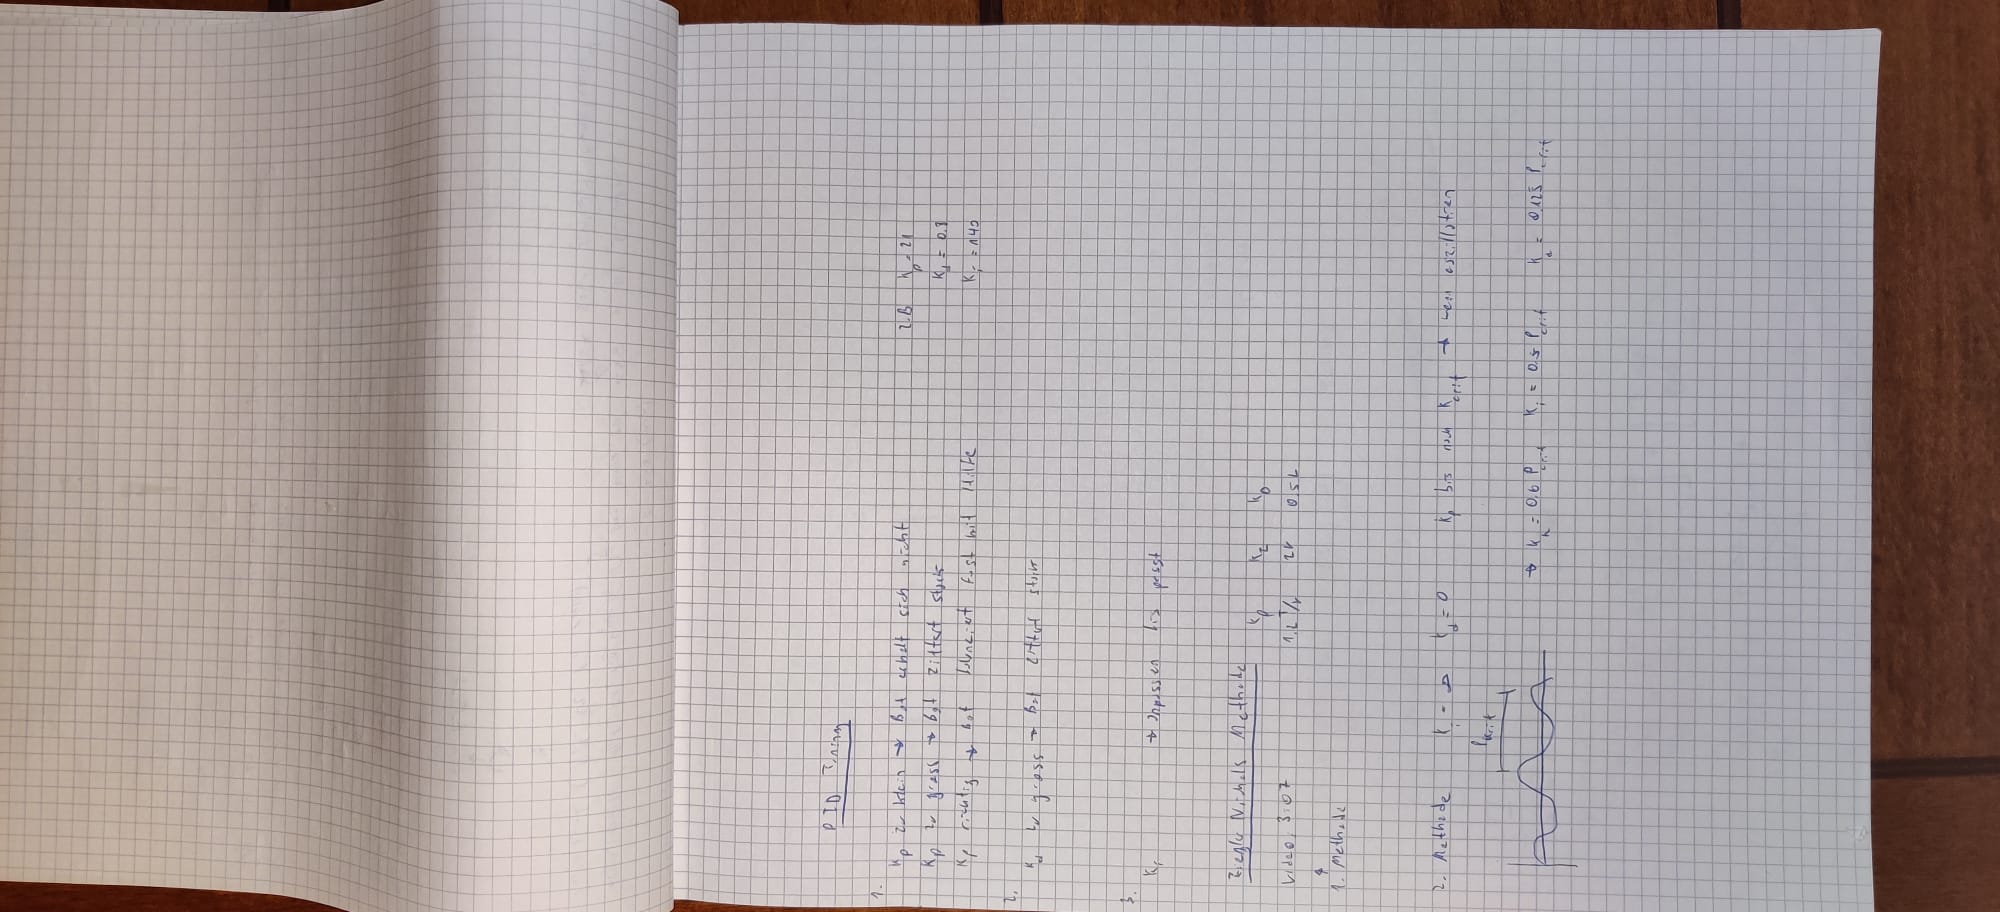 PID Tuning
1. Kp zu klein → Bot erholt sich nicht z.B Kp = 21
Kp zu gross → Bot zittert stark Kd = 0.8
Kp richtig → Bot balanciert fast mit Hilfe Ki = 140
2. Kd zu gross → Bot zittert stark
3. Ki → anpassen bis passt
Ziegler Nichols Methode
Kp KI KD
Video: 3:07 1.2 T/ 2 0.5
1. Methode
2. Methode Ki = Kd = 0 Kp bis nach Kcrit → wenn oszillatren
Pkrit
→ = 0.6 Pcrit Ki = 0.5 Pcrit Kd = 0.125 Pcrit